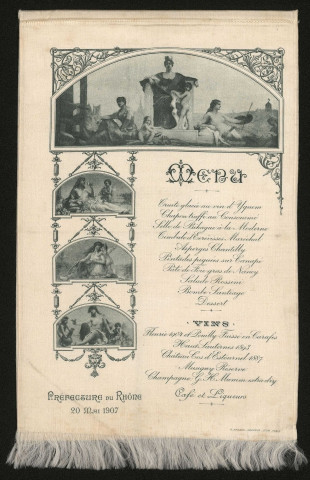 Menu
Truite glacée au vin d'Yquem
Chapon truffé au Consommé
Selle de Béhague à la Moderne
Timbale d'Ecrevisses Maréchal
Asperges Chantilly
Pintades piquées sur Canapé
Pâté de Foie gras de Nancy
Salade Rossini
Bombe Santiago
Dessert
VINS
Fleurie 1904 et Pouilly Fuissé en Carafes
Haut Sauternes 1893
Château Cos d'Estournel 1887
Musigny Réserve
Champagne G. H. Mumm extra dry
Café et Liqueurs
PRÉFECTURE DU RHÔNE
20 MAI 1907